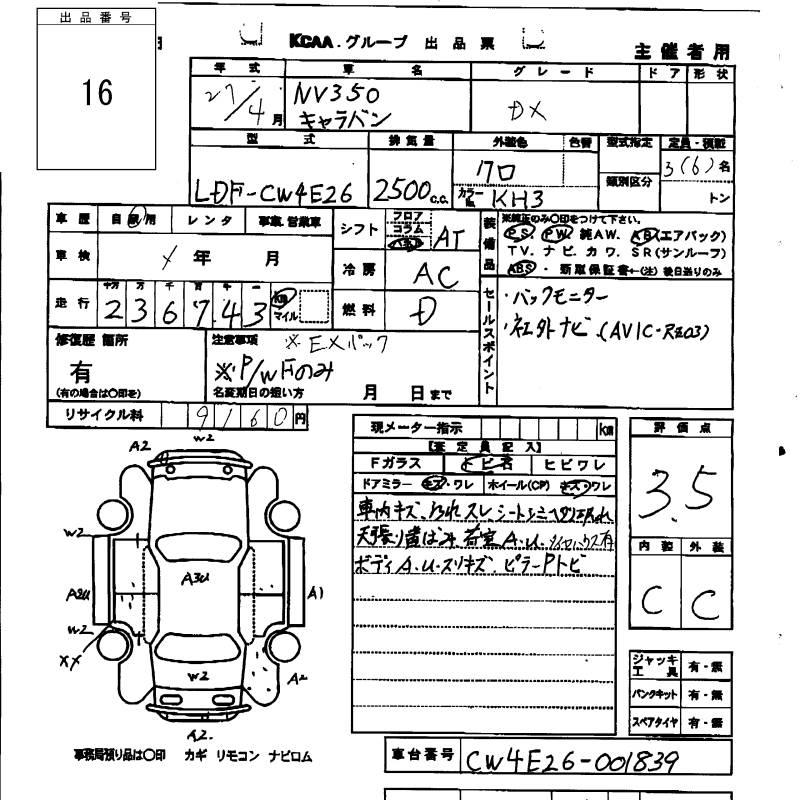 出品番号
16
KCAA.グループ 出品票
主催者用
年式 車名 グレード ドア 形状
27/4月 NV350 キャラバン DX
型式 排気量 外装色 色替 型式指定 定員・積載
LDF-CW4E26 2500c.c. クロ 3(6)名
カラーNo. KH3 類別区分 トン
車歴 自家用 レンタ 事業.営業車
シフト フロア コラム AT
車検 年 月
冷房 AC
走行 十万 万 千 百 十 一
236743 km マイル
燃料 D
装備品 ※純正のみ〇印をつけて下さい。
PS PW 純AW. AB(エアバック)
TV. ナビ. カワ. SR(サンルーフ)
ABS・新車保証書←(注)後日送りのみ
セールスポイント
・バックモニター
・社外ナビ.(AVIC-RZ03)
修復歴 箇所
有
(有の場合は〇印を)
注意事項 ※EXパック
※P/WFのみ
名変期日の短い方 月 日まで
リサイクル料 9160円
現メーター指示 km
【査定員記入】
Fガラス トビ石 ヒビワレ
ドアミラー キズ・ワレ ホイール(CP) キズ・ワレ
車内キズ.よごれ スレ シートシミ
天張り 荷室A.U.
ボディA.U.スリキズ. ピラーPトビ
評価点
3.5
内装 外装
C C
ジャッキ工具 有・無
パンクキット 有・無
スペアタイヤ 有・無
A2 W2
W2
A3U
A2U A1
W2
XX
W2 A2
A2
事務局預り品は〇印 カギ リモコン ナビロム
車台番号 CW4E26-001839